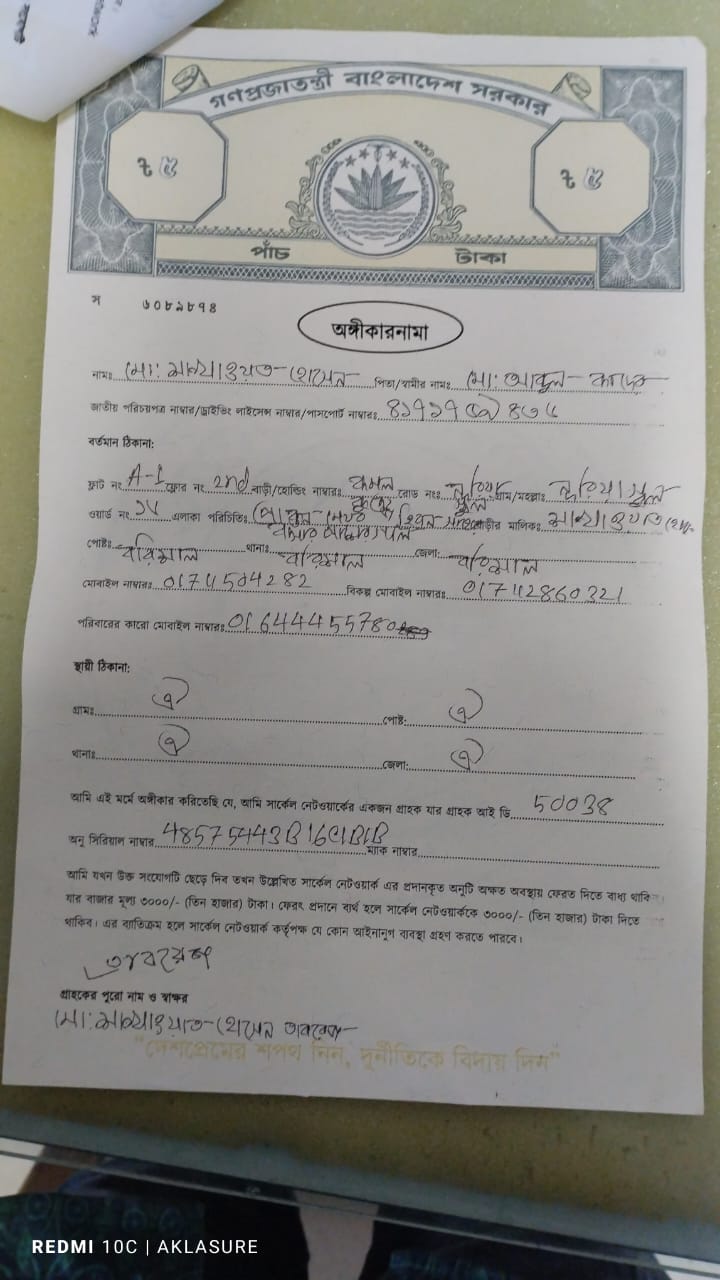 গণপ্রজাতন্ত্রী বাংলাদেশ সরকার
৳ ৫ ৳ ৫
পাঁচ টাকা
স ৬০৮৯৮৭৪
অঙ্গীকারনামা
নামঃ মো: সাখাওয়াত হোসেন পিতা/স্বামীর নামঃ মো: আবুল কাদের
জাতীয় পরিচয়পত্র নাম্বার/ড্রাইভিং লাইসেন্স নাম্বার/পাসপোর্ট নাম্বারঃ
বর্তমান ঠিকানা:
ফ্লাট নং A-1 ফ্লোর নং 2nd বাড়ী/হোল্ডিং নাম্বারঃ রোড নংঃ নূরিয়া স্কুল গ্রাম/মহল্লাঃ নূরিয়া স্কুল
ওয়ার্ড নং এলাকা পরিচিতিঃ বাড়ীর মালিকঃ সাখাওয়াত
পোষ্টঃ বরিশাল থানাঃ বরিশাল জেলা: বরিশাল
মোবাইল নাম্বারঃ 01711504282 বিকল্প মোবাইল নাম্বারঃ 01712860321
পরিবারের কারো মোবাইল নাম্বারঃ 01644455780
স্থায়ী ঠিকানা:
গ্রামঃ ঐ পোষ্ট: ঐ
থানাঃ ঐ জেলা: ঐ
আমি এই মর্মে অঙ্গীকার করিতেছি যে, আমি সার্কেল নেটওয়ার্কের একজন গ্রাহক যার গ্রাহক আই ডি 50038
অনু সিরিয়াল নাম্বার 48575443B16C1B1B ম্যাক নাম্বার
আমি যখন উক্ত সংযোগটি ছেড়ে দিব তখন উল্লেখিত সার্কেল নেটওয়ার্ক এর প্রদানকৃত অনুটি অক্ষত অবস্থায় ফেরত দিতে বাধ্য থাকিব।
যার বাজার মূল্য ৩০০০/- (তিন হাজার) টাকা। ফেরৎ প্রদানে ব্যর্থ হলে সার্কেল নেটওয়ার্ককে ৩০০০/- (তিন হাজার) টাকা দিতে
থাকিব। এর ব্যতিক্রম হলে সার্কেল নেটওয়ার্ক কর্তৃপক্ষ যে কোন আইনানুগ ব্যবস্থা গ্রহণ করতে পারবে।
গ্রাহকের পুরো নাম ও স্বাক্ষর
মো: সাখাওয়াত হোসেন
"দেশপ্রেমের শপথ নিন, দুর্নীতিকে বিদায় দিন"
REDMI 10C | AKLASURE